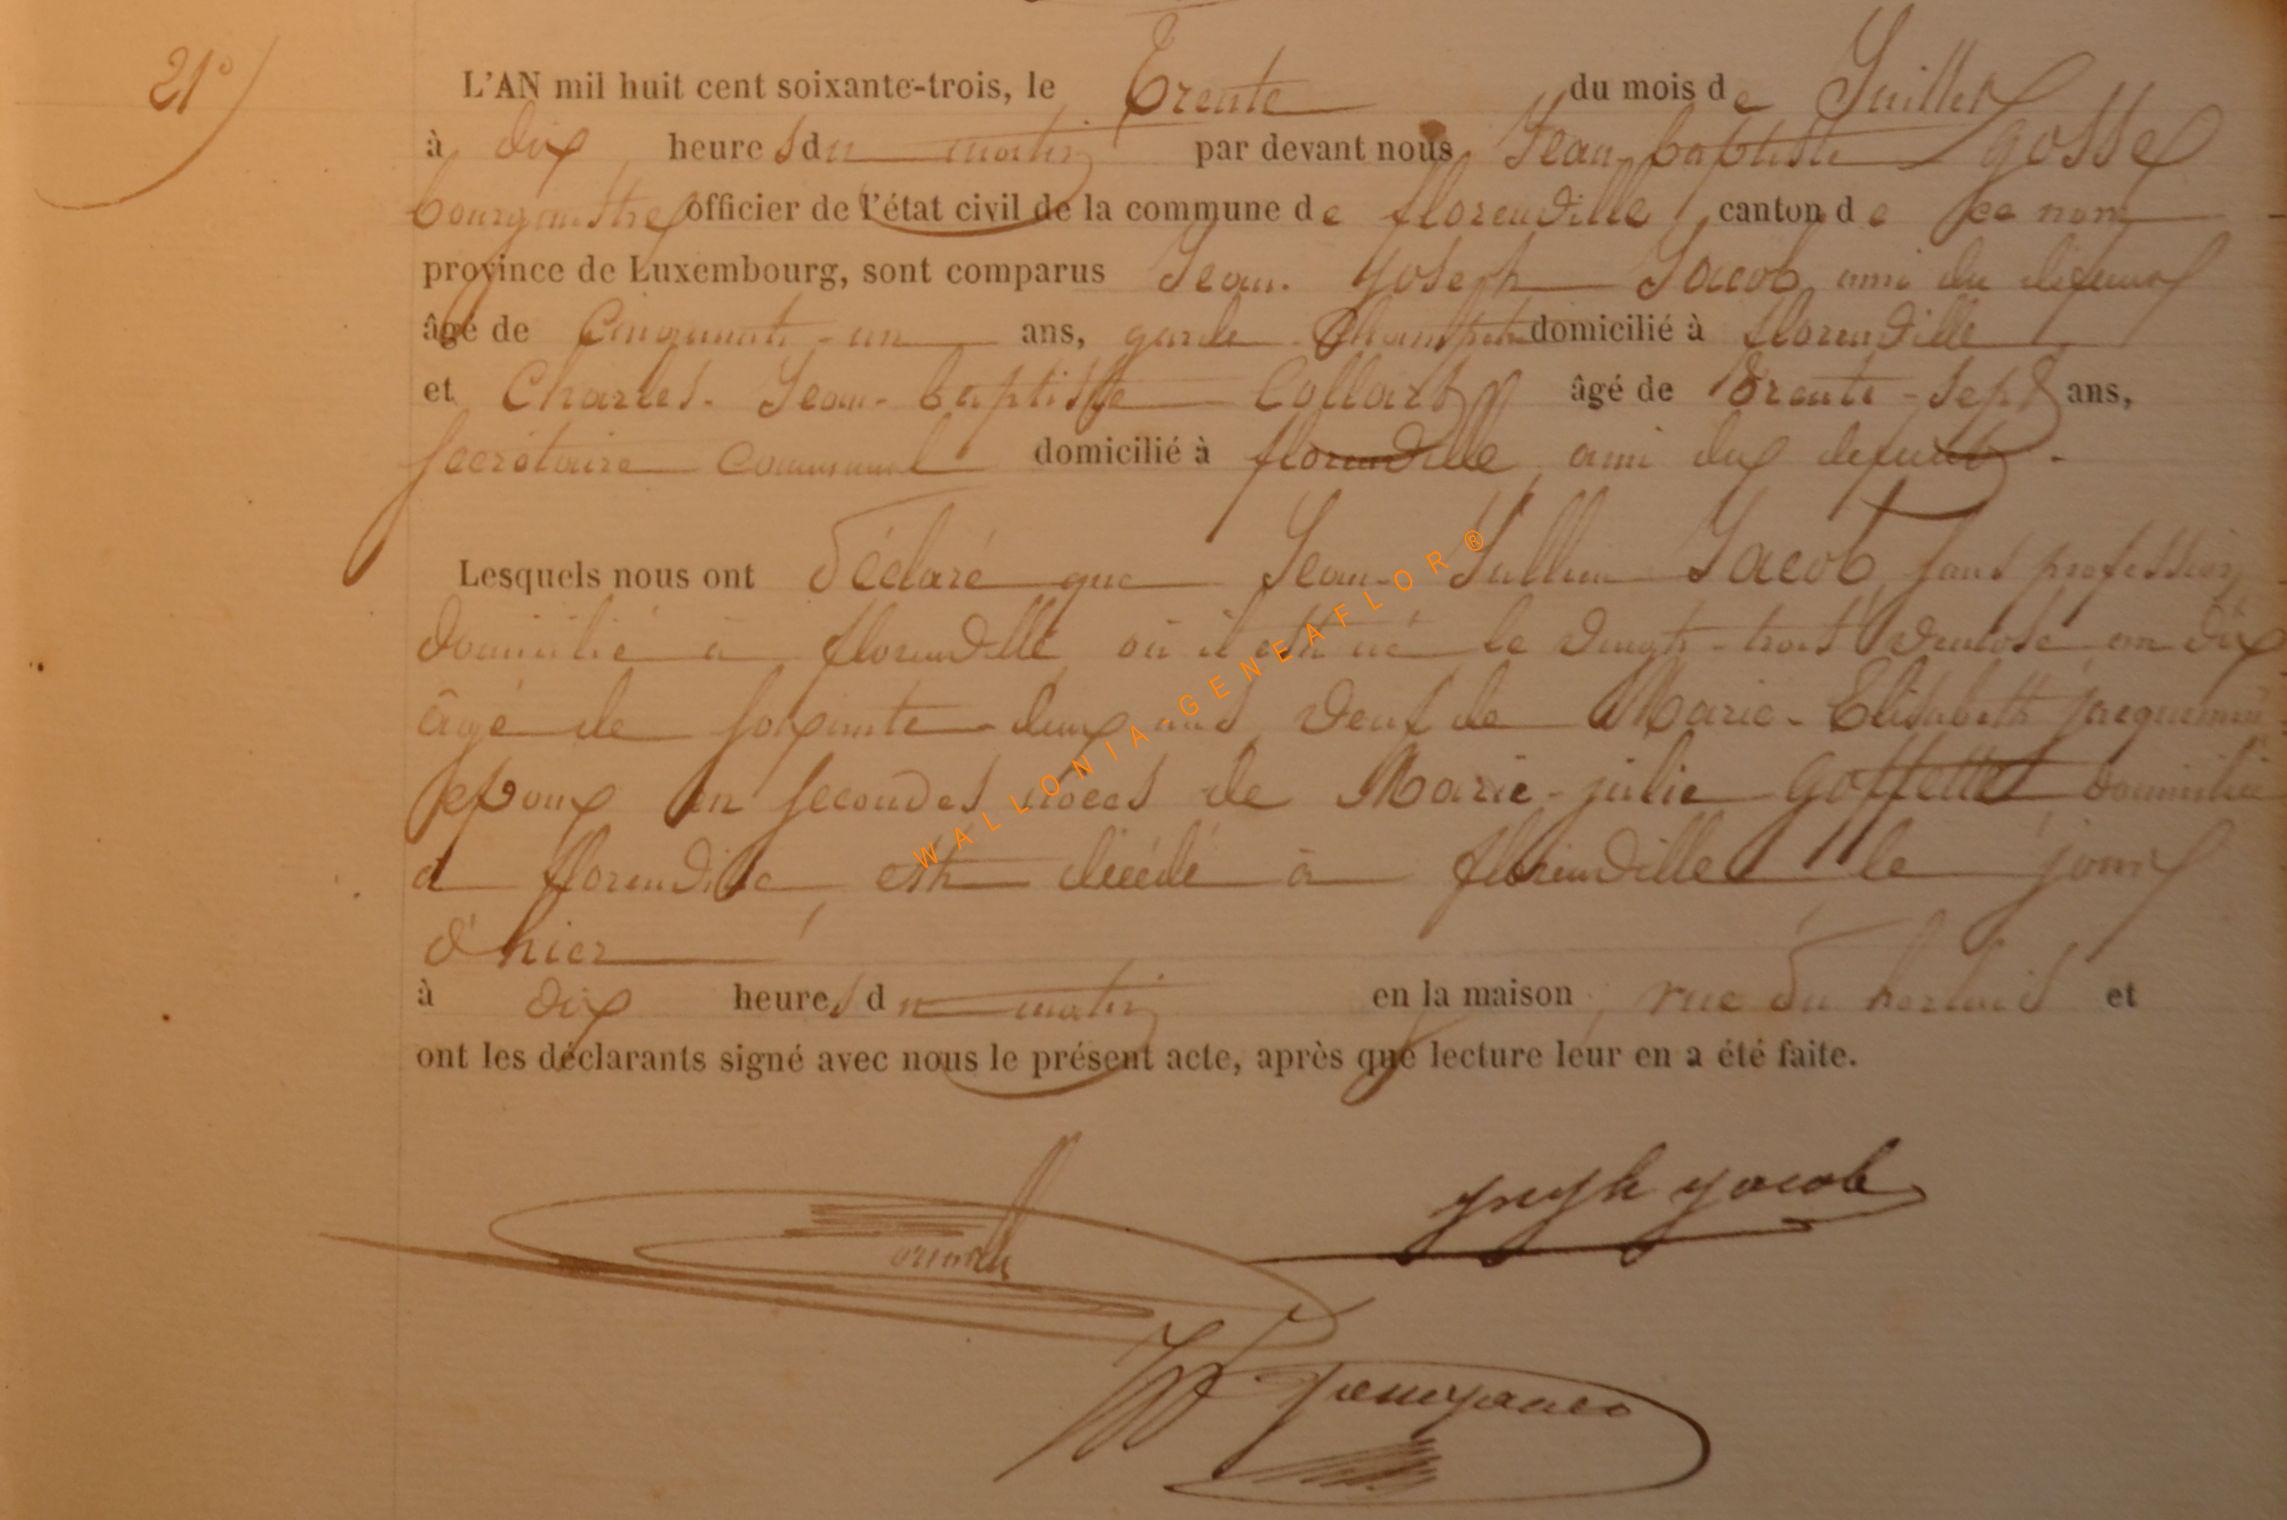 21°
L'AN mil huit cent soixante-trois, le Trente du mois de Juillet
à dix heures du matin par devant nous Jean baptiste gosse
bourgmestre officier de l'état civil de la commune de florenville, canton de ce nom
province de Luxembourg, sont comparus Jean. Joseph Jacob, ami du défunt
âgé de Cinquante-un ans, garde-Champêtre domicilié à florenville
et Charles. Jean-baptiste Collart âgé de Trente-sept ans,
secrétaire communal domicilié à florenville, ami du défunt.
Lesquels nous ont déclaré que Jean-Jullien Jacob, sans profession
domicilié à florenville où il est né le vingt-trois ventose an dix
âgé de soixante-deux ans, veuf de Marie-Elisabeth jacquemin
époux en secondes noces de Marie-julie goffette domiciliée
à florenville, est décédé à florenville le jour
d'hier
à dix heures du matin en la maison, rue du et
ont les déclarants signé avec nous le présent acte, après que lecture leur en a été faite.
joseph jacob
WALLONIA-GENEAFLOR®